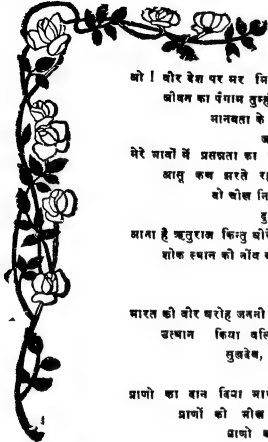 ओ ! वीर देश पर मर मि
जीवन का पैगाम तुम्हा
मानवता के
ज
मेरे भावों में प्रसन्नता का
आसू कब झरते रह
वो चोख नि
दु
आता है ऋतुराज किन्तु धोरे
शोक स्थान की नींव क
भारत की वीर धरोह जननी
उत्थान किया बलि
सुखदेव,
प्राणो का दान दिया भाप
प्राणों की भीख
प्राणो क